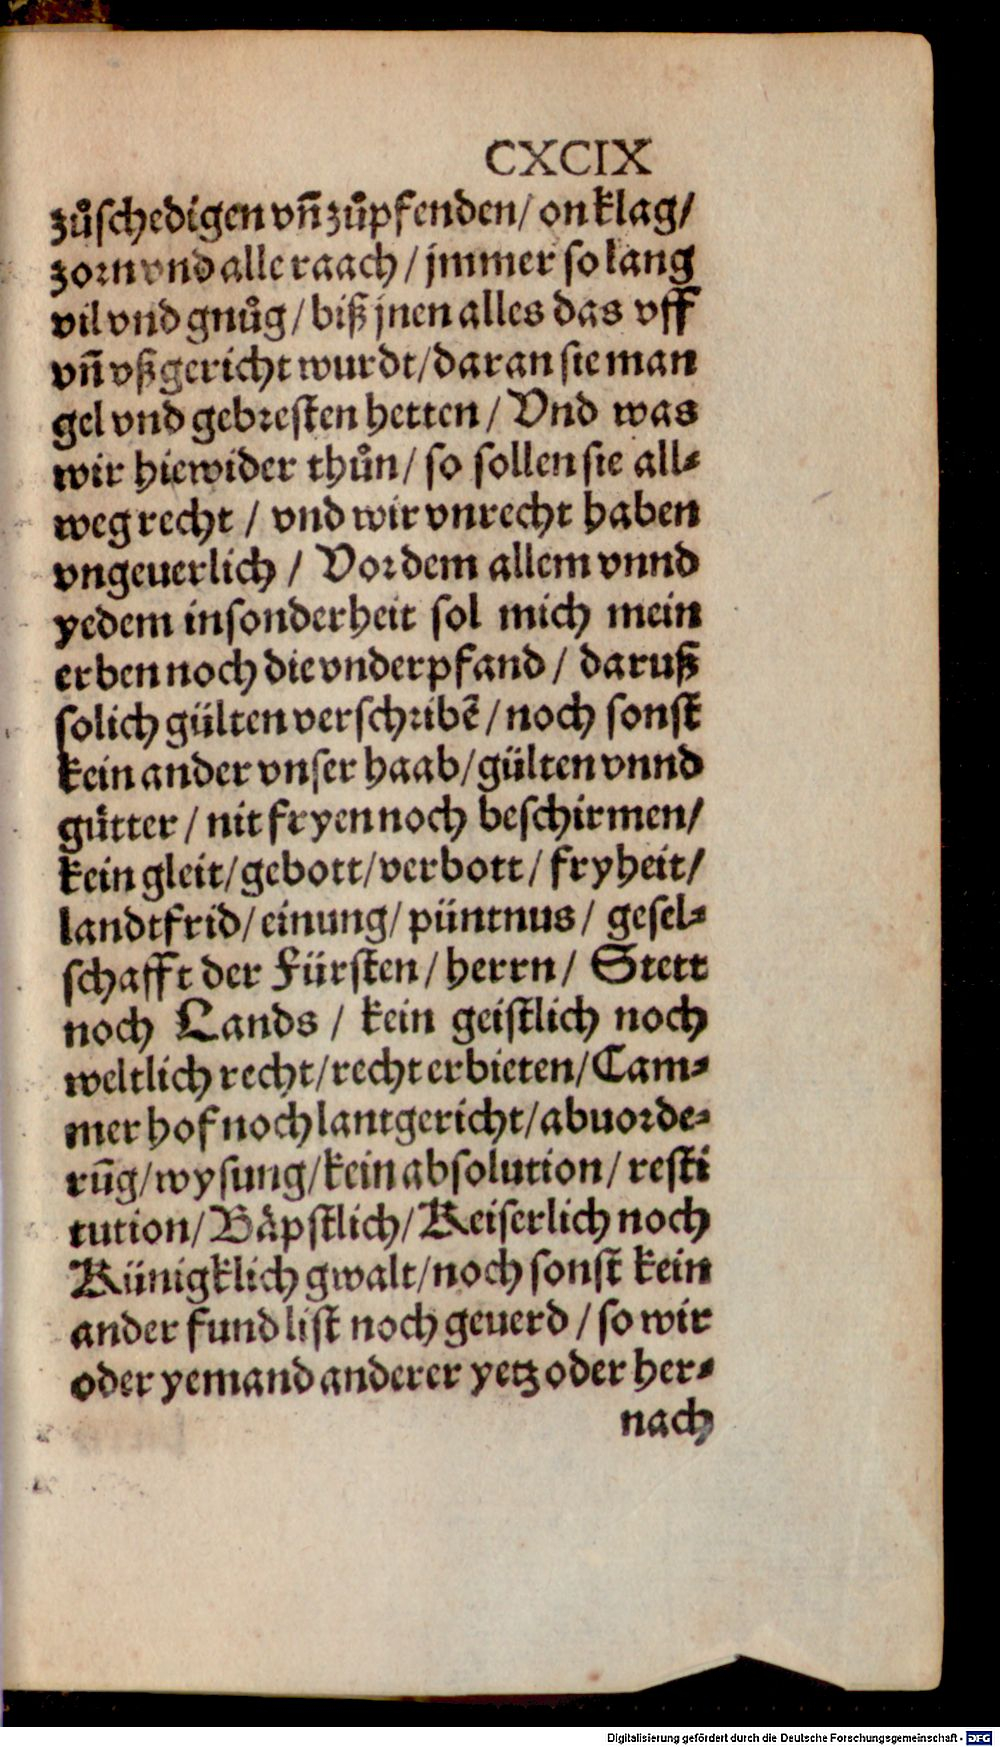 CXCIX
zůschedigen vn̄ zůpfenden/ on klag/
zorn vnd alle raach / jmmer so lang
vil vnd gnůg / biß jnen alles das vff
vn̄ vßgericht wurdt/ daran sie man
gel vnd gebresten hetten / Vnd was
wir hiewider thůn/ so sollen sie all⸗
weg recht / vnd wir vnrecht haben
vngeuerlich / Vor dem allem vnnd
yedem insonderheit sol mich mein
erben noch die vnderpfand / daruß
solich gülten verschribē / noch sonst
kein ander vnser haab/ gülten vnnd
gütter / nit fryen noch beschirmen/
kein gleit/ gebott/ verbott / fryheit/
landtfrid/ einung/ püntnus / gesel⸗
schafft der Fürsten / herrn / Stett
noch Lands / kein geistlich noch
weltlich recht/ recht erbieten/ Cam⸗
mer hof noch lantgericht/ abuorde⸗
rūg/ wysung/ kein absolution / resti
tution/ Bäpstlich/ Keiserlich noch
Künigklich gwalt/ noch sonst kein
ander fund list noch geuerd / so wir
oder yemand anderer yetz oder her⸗
nach
Digitalisierung gefördert durch die Deutsche Forschungsgemeinschaft - DFG